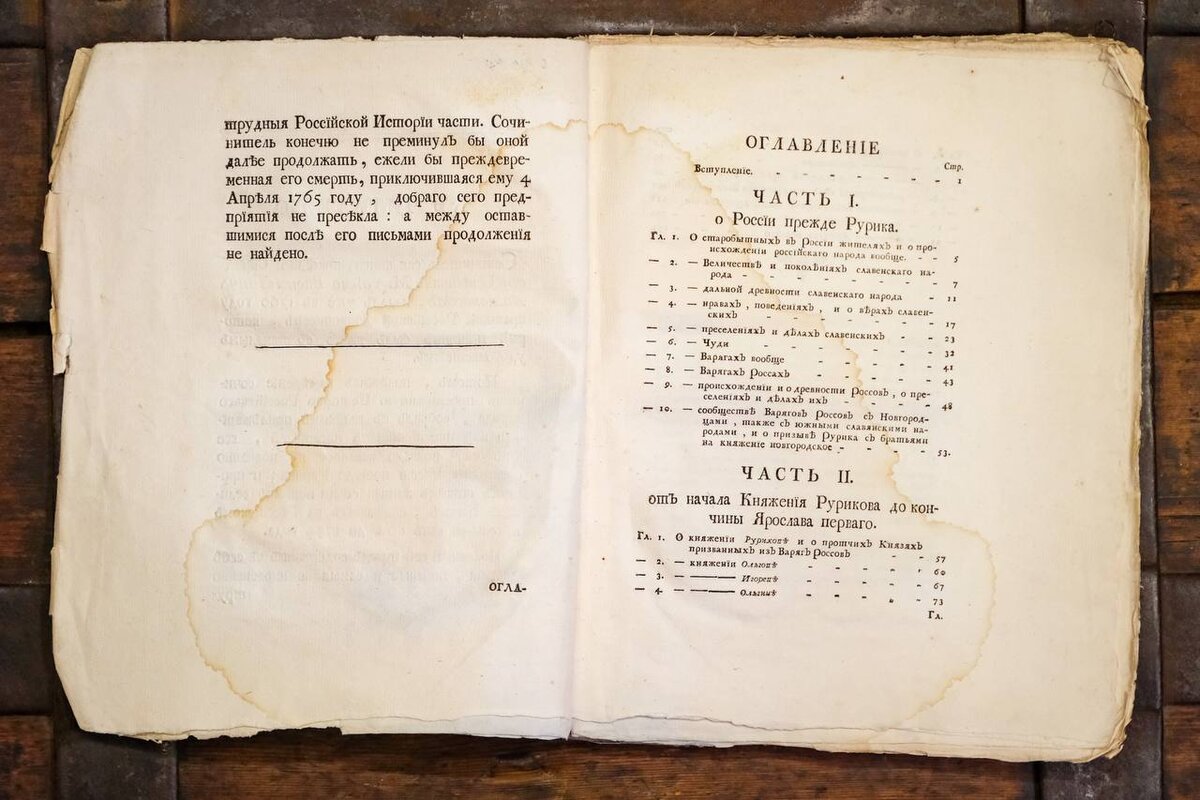 трудныя Россїйской Исторїи части. Сочи-
нитель конечно не преминулъ бы оной
далѣе продолжать, ежели бы преждевре-
менная его смерть, приключившаяся ему 4
Апрѣля 1765 году, добраго сего пред-
прїятїя не пресѣкла: а между остав-
шимися послѣ его письмами продолженїя
не найдено.
ОГЛА-
ОГЛАВЛЕНІЕ
Стр.
Вступленїе. - - - - - - - 1
ЧАСТЬ I.
о Россїи прежде Рурика.
Гл. 1. О старобытныхъ въ Россїи жителяхъ и о про-
исхожденїи россїйскаго народа вообще. - - 5
— 2. — Величествѣ и поколѣнїяхъ славенскаго на-
рода - - - - - - - 7
— 3. — дальной древности славенскаго народа - 11
— 4. — нравахъ, поведенїяхъ, и о вѣрахъ славен-
скихъ - - - - - - 17
— 5. — преселенїяхъ и дѣлахъ славенскихъ - - 23
— 6. — Чуди - - - - - - 32
— 7. — Варягахъ вообще - - - - - 41
— 8. — Варягахъ Россахъ - - - - - 43
— 9. — происхожденїи и о древности Россовъ, о пре-
селенїяхъ и дѣлахъ ихъ - - - - 48
— 10. — сообществѣ Варяговъ Россовъ съ Новгород-
цами, также съ южными славянскими на-
родами, и о призывѣ Рурика съ братьями
на княженїе новгородское - - - - 53.
ЧАСТЬ II.
отъ начала Княженїя Рурикова до кон-
чины Ярослава перваго.
Гл. 1. О княженїи Руриковѣ и о протчихъ Князяхъ
призванныхъ изъ Варягъ Россовъ - - 57
— 2. — княженїи Ольговѣ - - - - - 60
— 3. — —— Игоревѣ - - - - - 67
— 4. — —— Ольгинѣ - - - - - 73
Гл.